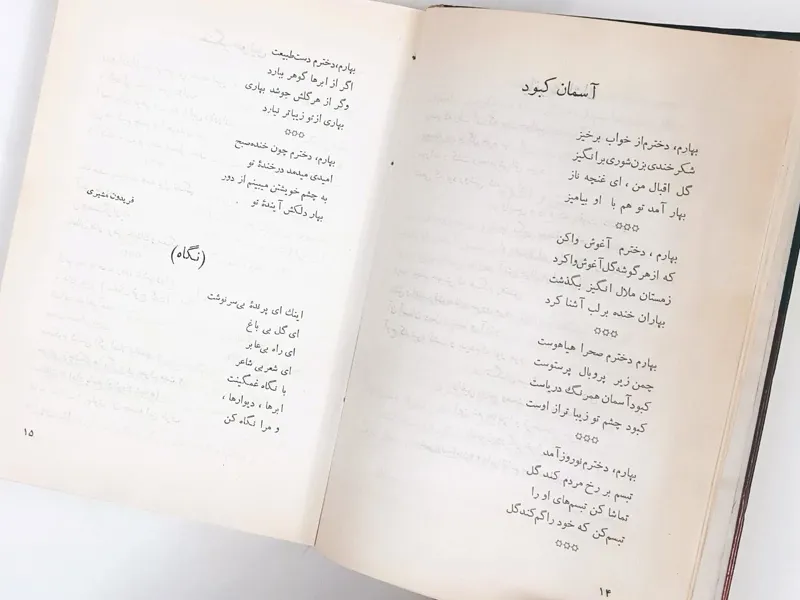 آسمان کبود
بهارم، دخترم از خواب برخیز
شکرخندی بزن شوری برانگیز
گل اقبال من ، ای غنچه ناز
بهار آمد تو هم با او بیامیز
☼☼☼
بهارم ، دخترم آغوش واکن
که از هر گوشه گل آغوش وا کرد
زمستان ملال انگیز بگذشت
بهاران خنده بر لب آشنا کرد
☼☼☼
بهارم دخترم صحرا هیاهوست
چمن زیر پروبال پرستوست
کبود آسمان همرنگ دریاست
کبود چشم تو زیباتر از اوست
☼☼☼
بهارم، دخترم نوروز آمد
تبسم بر رخ مردم کند گل
تماشا کن تبسم‌های او را
تبسم کن که خود را گم کند گل
☼☼☼
۱۴
بهارم، دخترم دست طبیعت
اگر از ابرها گوهر ببارد
وگر از هر گلش جوشد بهاری
بهاری از تو زیباتر نیارد
☼☼☼
بهارم، دخترم چون خنده صبح
امیدی میدمد درخندۀ تو
به چشم خویشتن میبینم از دور
بهار دلکش آیندۀ تو
فریدون مشیری
(نگاه)
اینك ای پرندۀ بی‌سرنوشت
ای گل بی باغ
ای راه بی‌عابر
ای شعر بی شاعر
با نگاه غمگینت
ابرها ، دیوارها ،
و مرا نگاه کن
۱۵